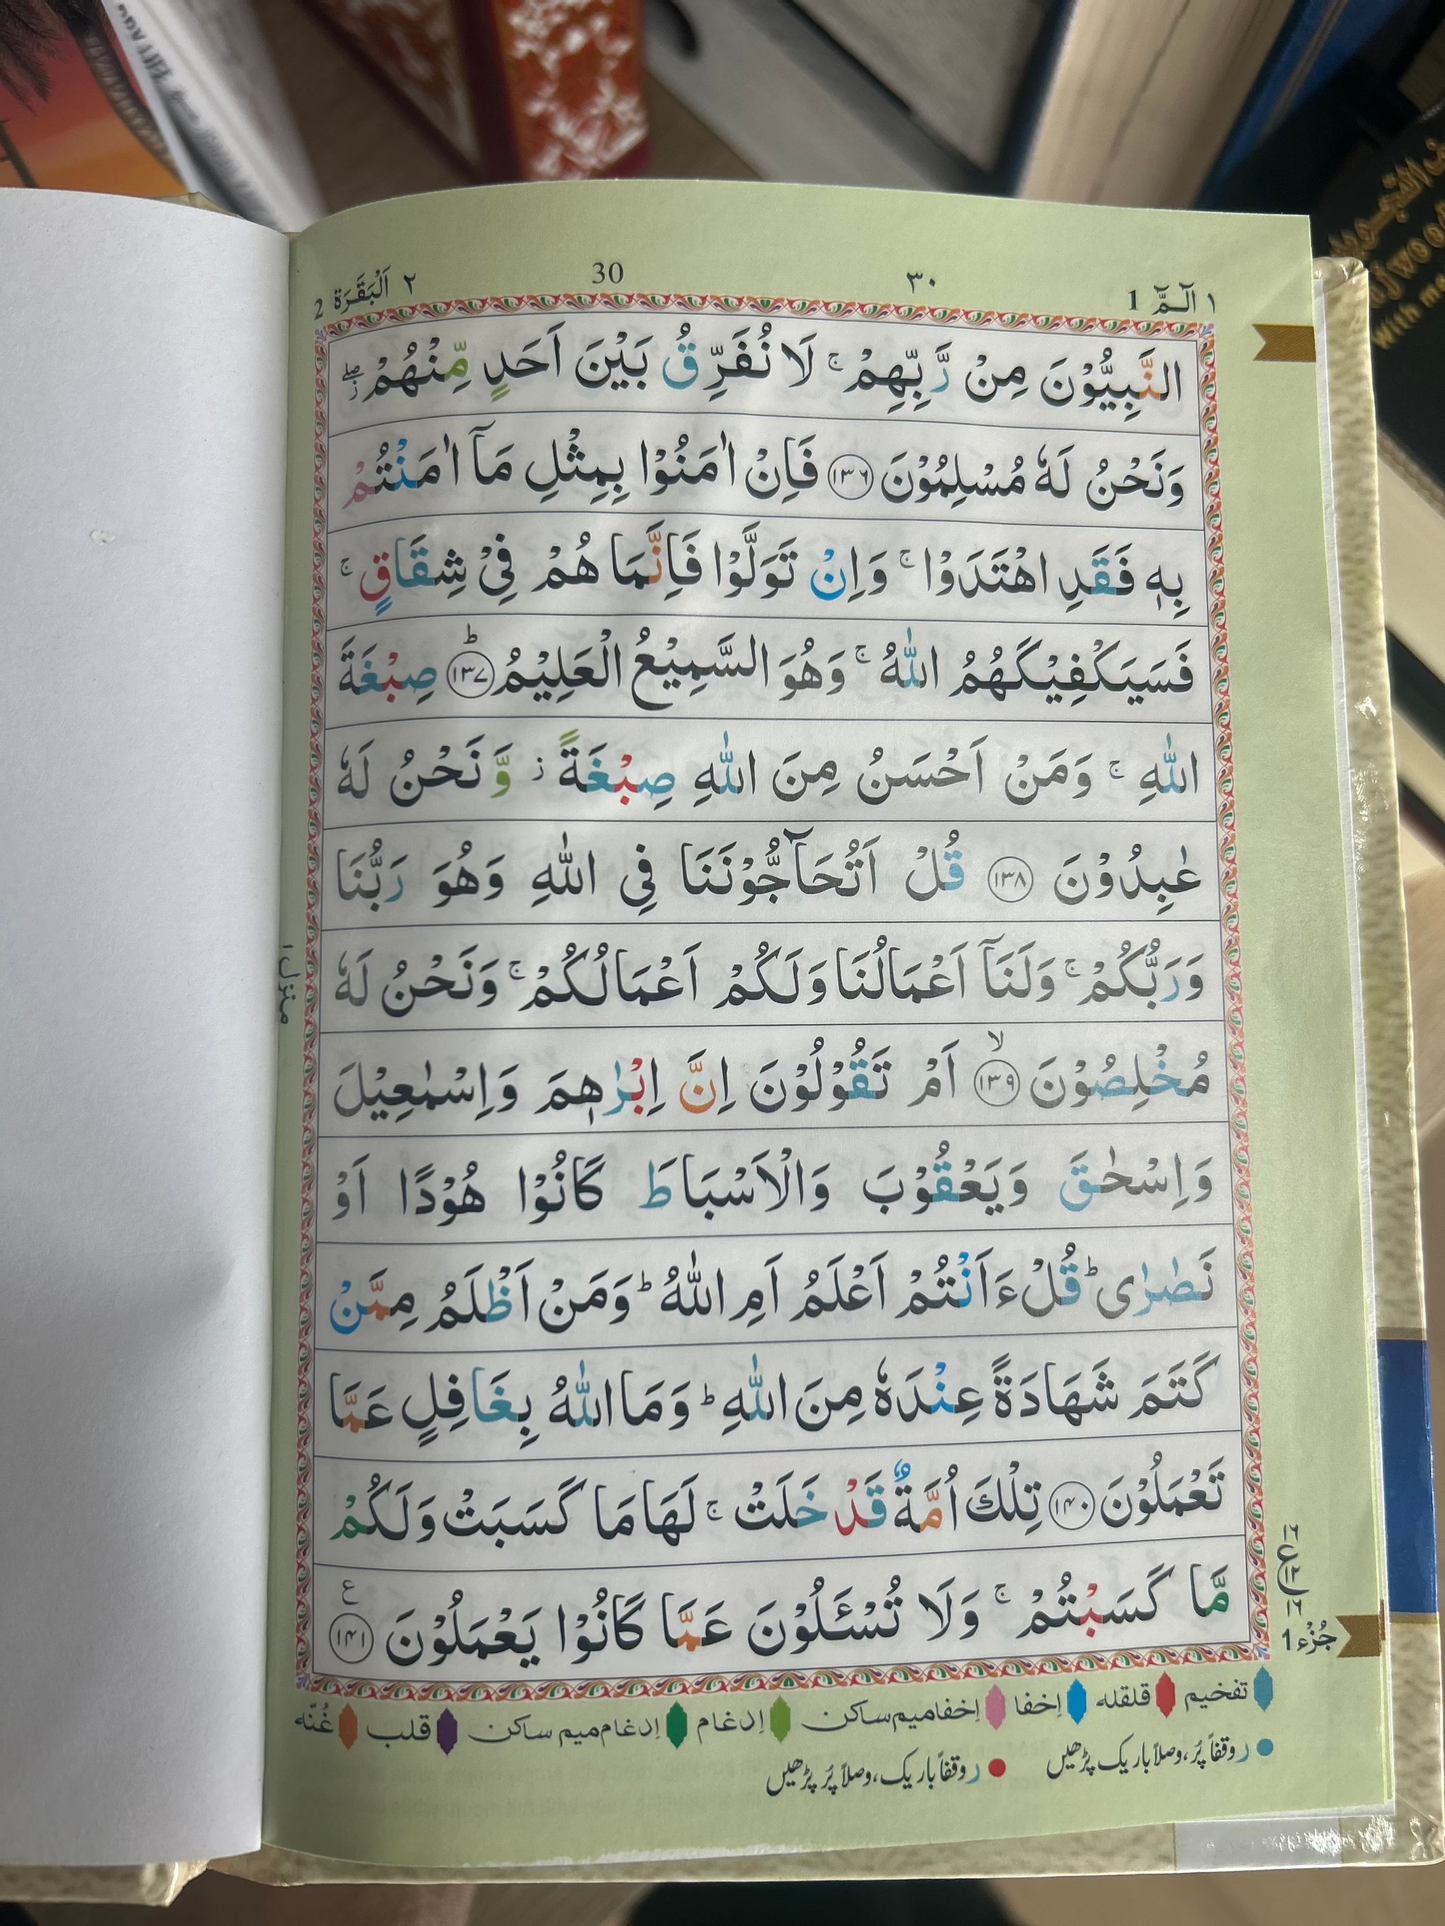 ١ الٓمّٓ 1
٣٠
30
٢ اَلْبَقَرَة 2
النَّبِيُّوْنَ مِنْ رَّبِّهِمْ ۚ لَا نُفَرِّقُ بَيْنَ اَحَدٍ مِّنْهُمْ ۖ ز
وَنَحْنُ لَهٗ مُسْلِمُوْنَ ﴿١٣٦﴾ فَاِنْ اٰمَنُوْا بِمِثْلِ مَاۤ اٰمَنْتُمْ
بِهٖ فَقَدِ اهْتَدَوْا ۚ وَاِنْ تَوَلَّوْا فَاِنَّمَا هُمْ فِيْ شِقَاقٍ ۚ
فَسَيَكْفِيْكَهُمُ اللّٰهُ ۚ وَهُوَ السَّمِيْعُ الْعَلِيْمُ ﴿١٣٧﴾ؕ صِبْغَةَ
اللّٰهِ ۚ وَمَنْ اَحْسَنُ مِنَ اللّٰهِ صِبْغَةً ز وَّنَحْنُ لَهٗ
عٰبِدُوْنَ ﴿١٣٨﴾ قُلْ اَتُحَآجُّوْنَنَا فِي اللّٰهِ وَهُوَ رَبُّنَا
وَرَبُّكُمْ ۚ وَلَنَاۤ اَعْمَالُنَا وَلَكُمْ اَعْمَالُكُمْ ۚ وَنَحْنُ لَهٗ
مُخْلِصُوْنَ ﴿١٣٩﴾ۙ اَمْ تَقُوْلُوْنَ اِنَّ اِبْرٰهٖمَ وَاِسْمٰعِيْلَ
وَاِسْحٰقَ وَيَعْقُوْبَ وَالْاَسْبَاطَ كَانُوْا هُوْدًا اَوْ
نَصٰرٰى ؕ قُلْ ءَاَنْتُمْ اَعْلَمُ اَمِ اللّٰهُ ؕ وَمَنْ اَظْلَمُ مِمَّنْ
كَتَمَ شَهَادَةً عِنْدَهٗ مِنَ اللّٰهِ ؕ وَمَا اللّٰهُ بِغَافِلٍ عَمَّا
تَعْمَلُوْنَ ﴿١٤٠﴾ تِلْكَ اُمَّةٌ قَدْ خَلَتْ ۚ لَهَا مَا كَسَبَتْ وَلَكُمْ
مَّا كَسَبْتُمْ ۚ وَلَا تُسْـَٔلُوْنَ عَمَّا كَانُوْا يَعْمَلُوْنَ ﴿١٤١﴾ ع
١٦
ع
١٢
١٦
جُزْء 1
منزل ١
تفخيم قلقله إخفا إخفاميم ساكن إدغام إدغام ميم ساكن قلب غُنّه
ر وقفاً پُر، وصلاً باریک پڑھیں
ر وقفاً باریک، وصلاً پُر پڑھیں